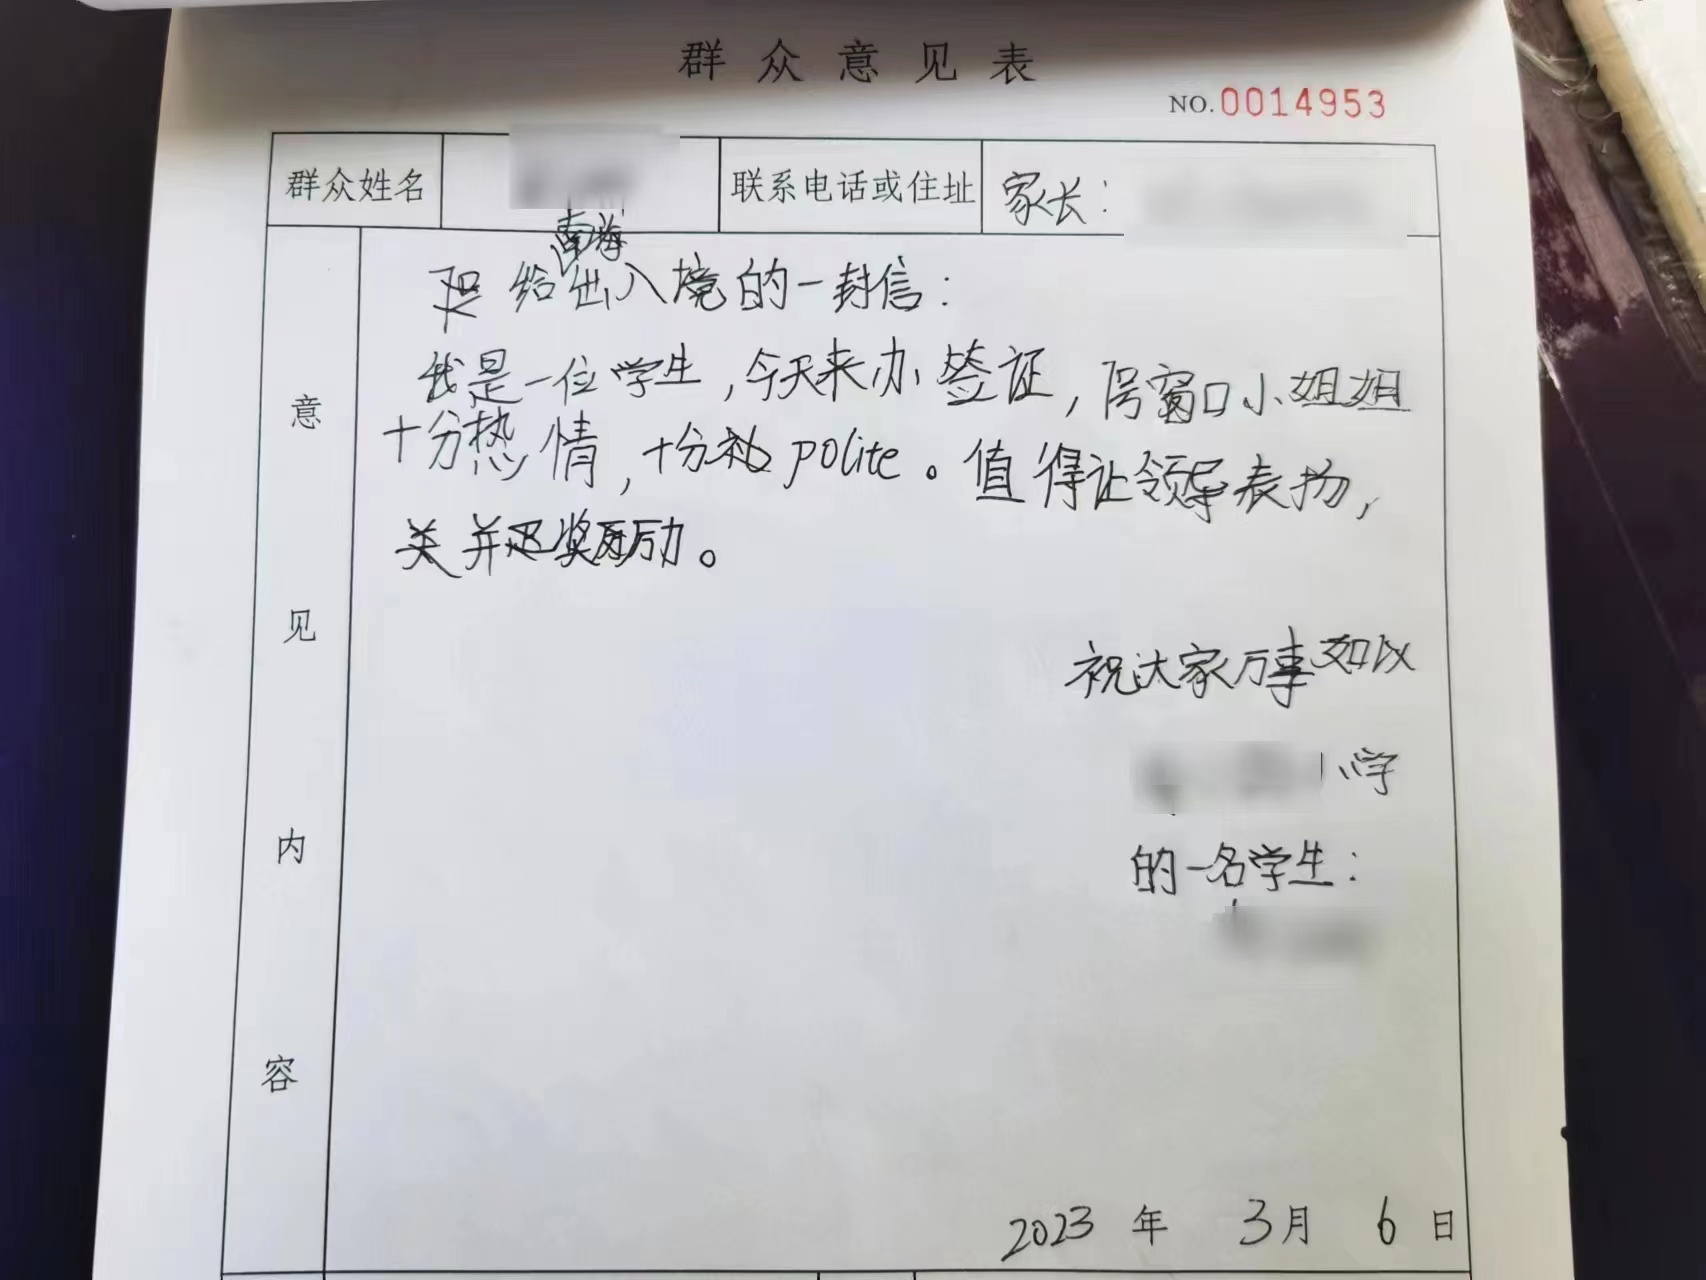 群众意见表
NO.0014953
群众姓名
联系电话或住址
家长：
南海
给出入境的一封信：
我是一位学生，今天来办签证，窗口小姐姐
十分热情，十分 polite。值得让领导表扬，
并 奖励。
祝大家万事如以
小学
的一名学生：
意见内容
2023 年 3月 6 日